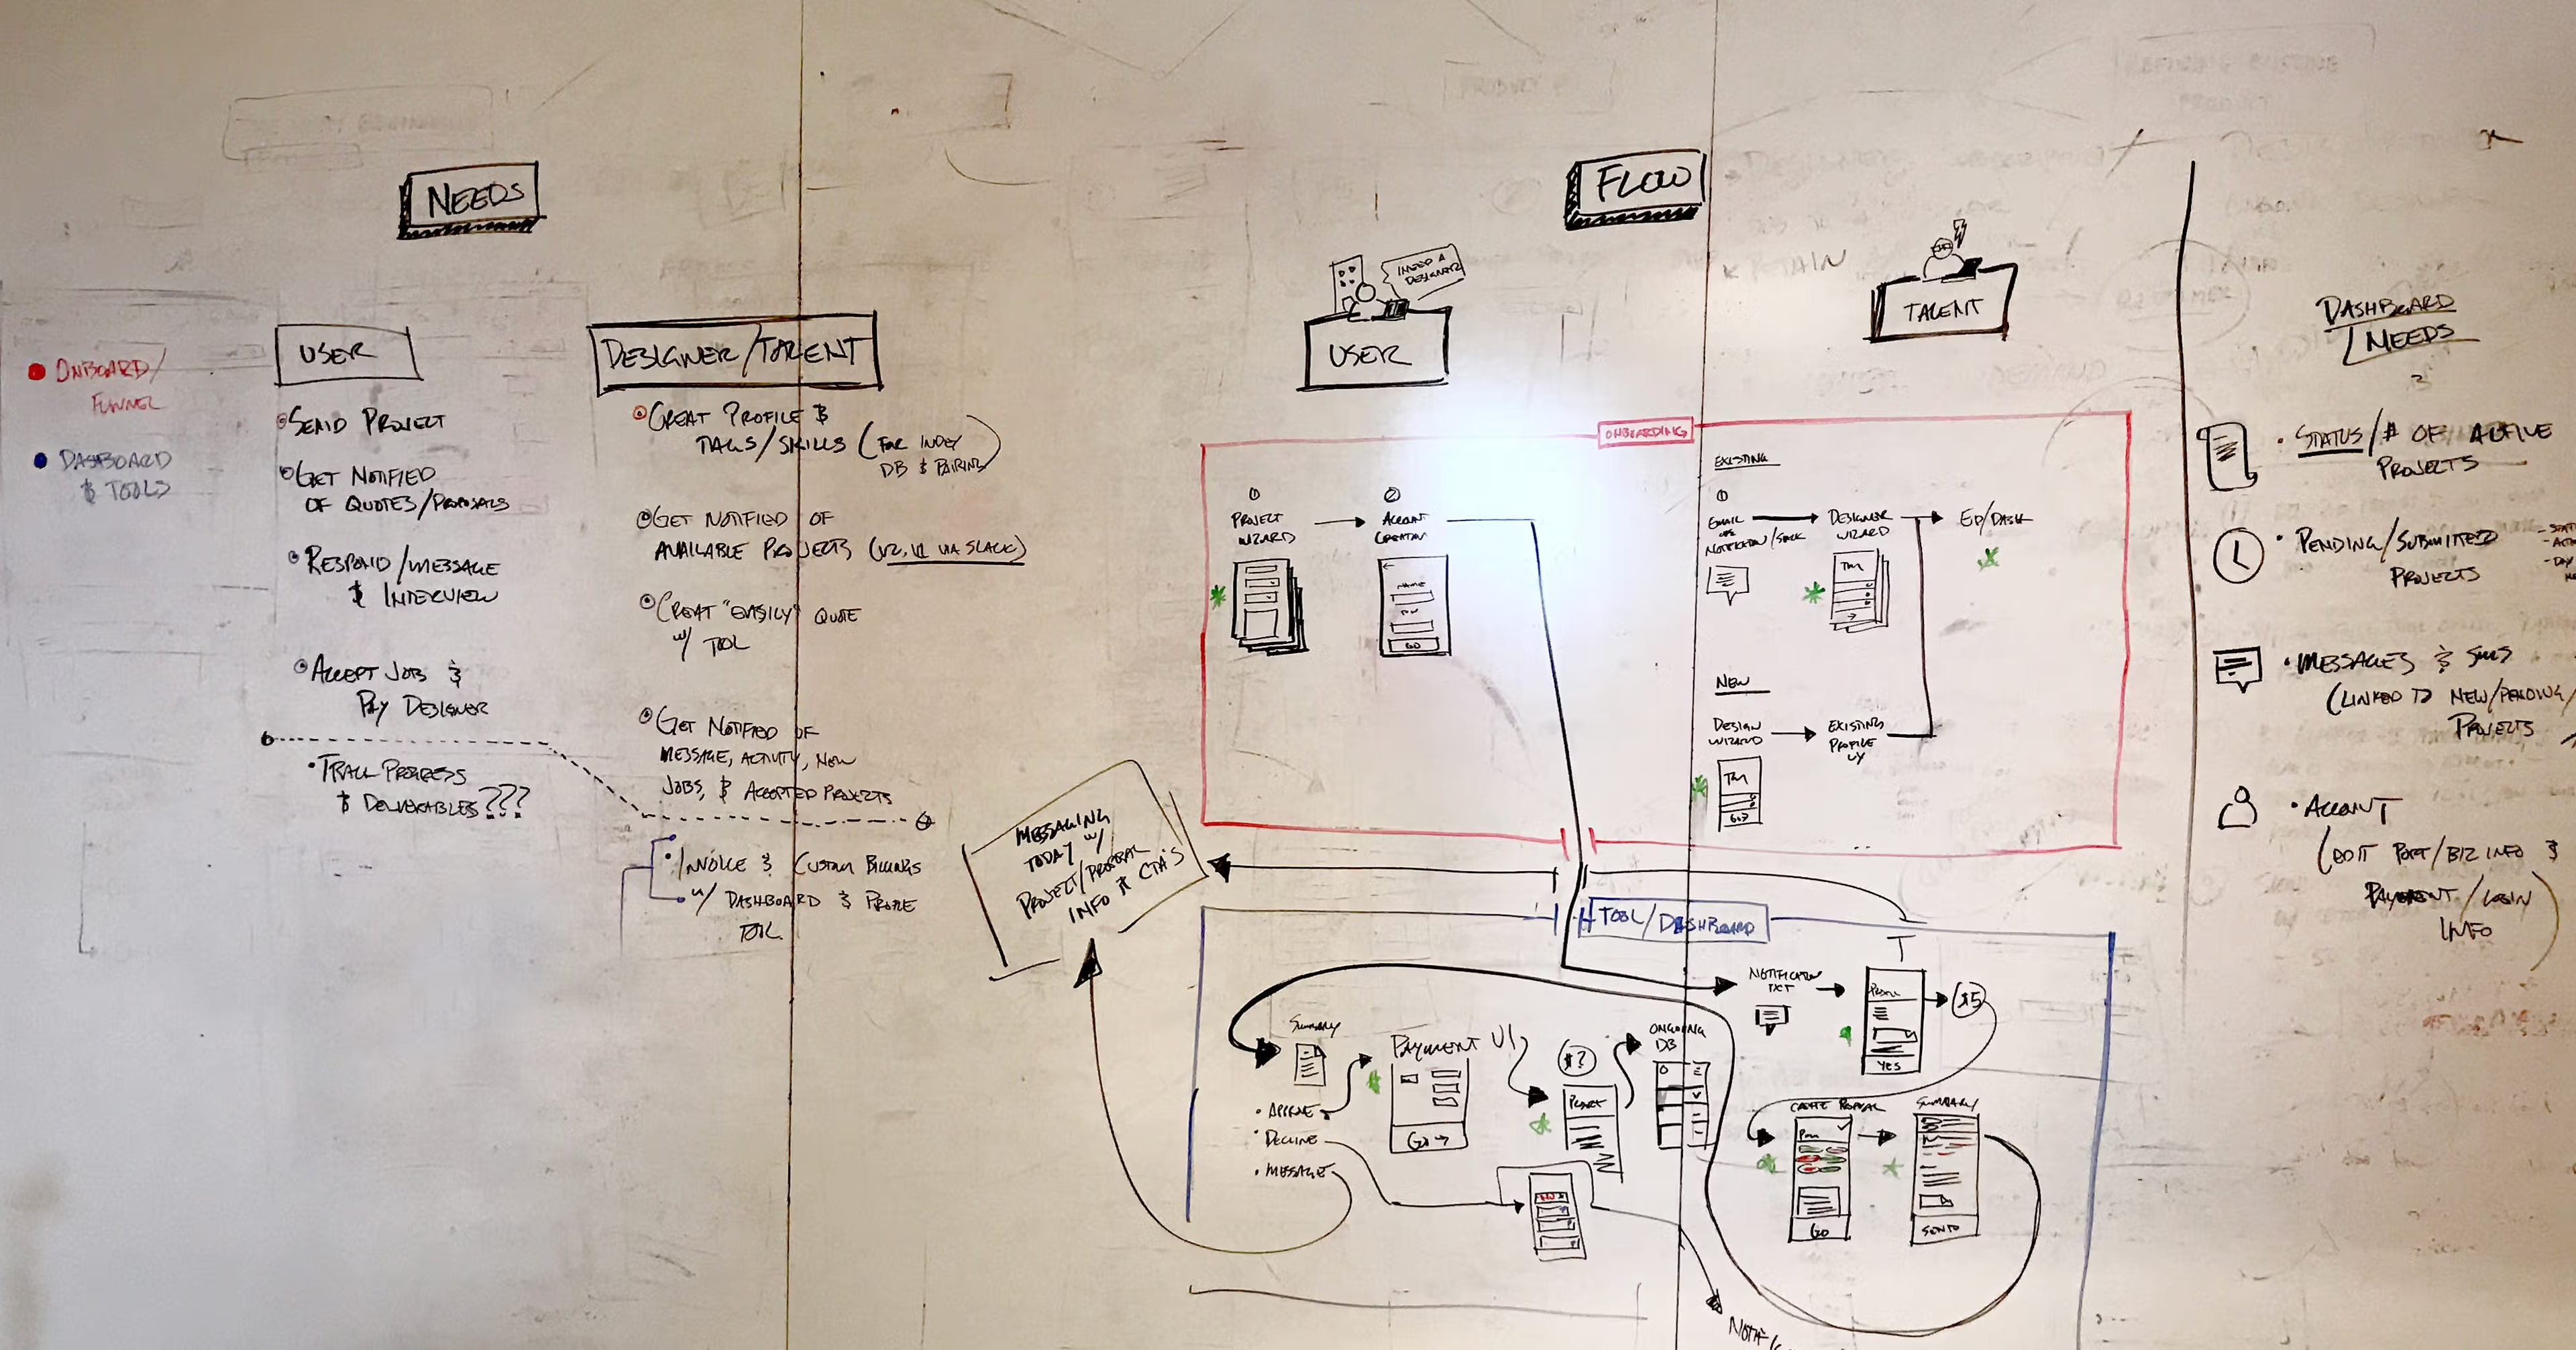 NEEDS
ONBOARD/
FUNNEL
DASHBOARD
& TOOLS
USER
•SEND PROJECT
•GET NOTIFIED
OF QUOTES/PROPOSALS
•RESPOND/MESSAGE
& INTERVIEW
•ACCEPT JOB &
PAY DESIGNER
•TRACK PROGRESS
& DELIVERABLES???
DESIGNER/TALENT
•CREAT PROFILE &
TAGS/SKILLS (FOR INDEX
DB & PAIRING)
•GET NOTIFIED OF
AVAILABLE PROJECTS (V2, V1 VIA SLACK)
•CREAT "EASILY" QUOTE
W/ TOOL
•GET NOTIFIED OF
MESSAGE, ACTIVITY, NEW
JOBS, & ACCEPTED PROJECTS
•INVOICE & CUSTOM BILLINGS
W/ DASHBOARD & PROFILE
TOOL
FLOW
I NEED A
DESIGNER
USER
TALENT
RETAIN
ONBOARDING
1
PROJECT
WIZARD
2
ACCOUNT
CREATION
NAME
GO
EXISTING
1
EMAIL
OR
NOTIFICATION/SLACK
DESIGNER
WIZARD
ED/DASH
NEW
DESIGN
WIZARD
EXISTING
PROFILE
UX
GO>
MESSAGING
TODAY W/
PROJECT/PROPOSAL
INFO & CTA'S
TOOL/DASHBOARD
NOTIFICATION
TXT
YES
$5
SUMMARY
•APPROVE
•DECLINE
•MESSAGE
PAYMENT UI
GO→
$?
PROJECT
ONGOING
DB
CREATE PROPOSAL
GO
SUMMARY
SEND
DASHBOARD
NEEDS
•STATUS/# OF ACTIVE
PROJECTS
•PENDING/SUBMITTED
PROJECTS
•MESSAGES & SMS
(LINKED TO NEW/PENDING/
PROJECTS
•ACCOUNT
(EDIT PORT/BIZ INFO &
PAYMENT/LOGIN
INFO)